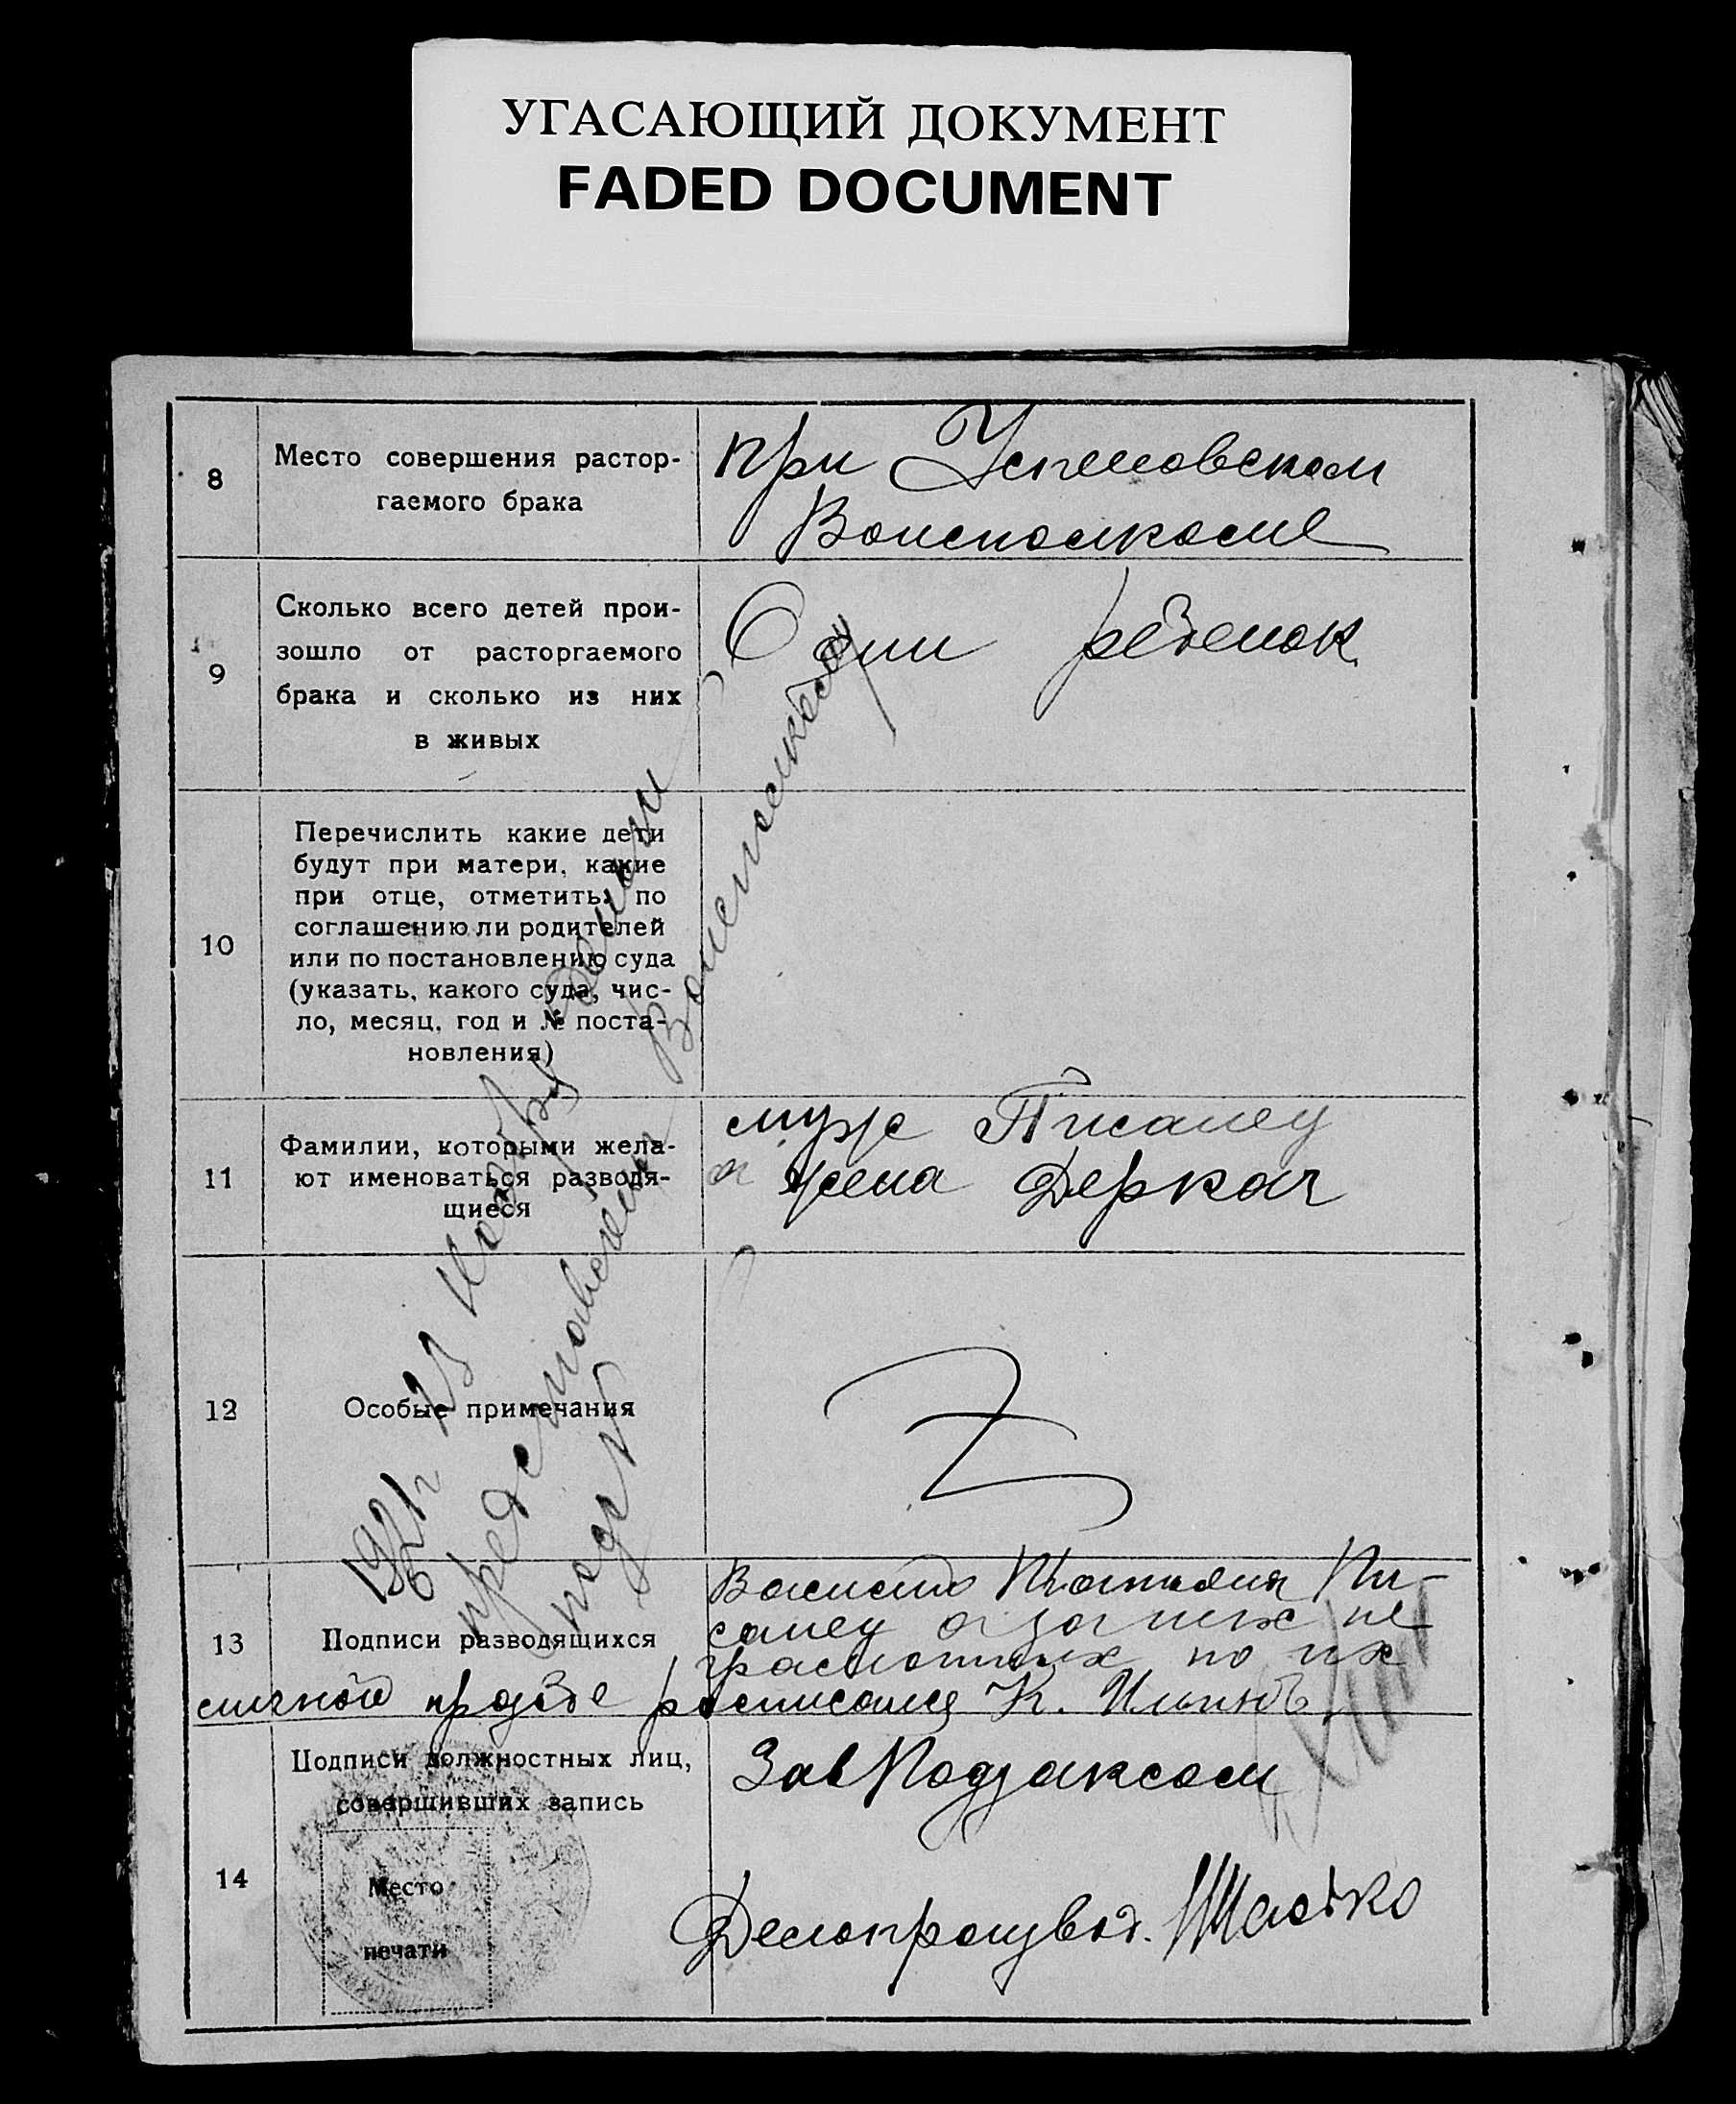 УГАСАЮЩИЙ ДОКУМЕНТ
FADED DOCUMENT
8
Место совершения растор-
гаемого брака
при Успеновском
Волисполкоме
9
Сколько всего детей прои-
зошло от расторгаемого
брака и сколько из них
в живых
Один ребенок
10
Перечислить какие дети
будут при матери, какие
при отце, отметить: по
соглашению ли родителей
или по постановлению суда
(указать, какого суда, чис-
ло, месяц, год и № поста-
новления)
11
Фамилии, которыми жела-
ют именоваться разводя-
щиеся
муж Писанец
а жена Деркач
12
Особые примечания
1921 г 23
13
Подписи разводящихся
Василий Татьяна Пи-
санец а за них не
грамотных по их
личной прозбе росписался К.
14
Подписи должностных лиц,
совершивших запись
Место
печати
Зав Подзаксом
Делопроизвод.